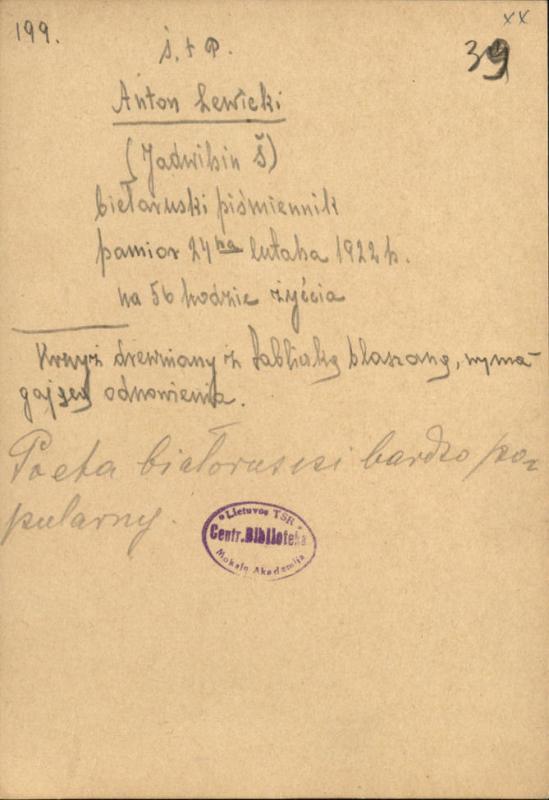 199.
xx
39
ś. + P.
Anton Lewicki
(Jadwihin Š)
biełaruski piśmiennik
pamior 24ha lutaha 1922 h.
na 56 hodzie žyćcia
Krzyż drewniany z tabliczką blaszaną, wyma-
gający odnowienia.
Poeta białoruski bardzo po=
pularny.
Lietuvos TSR
Centr. Biblioteka
Mokslo Akademija